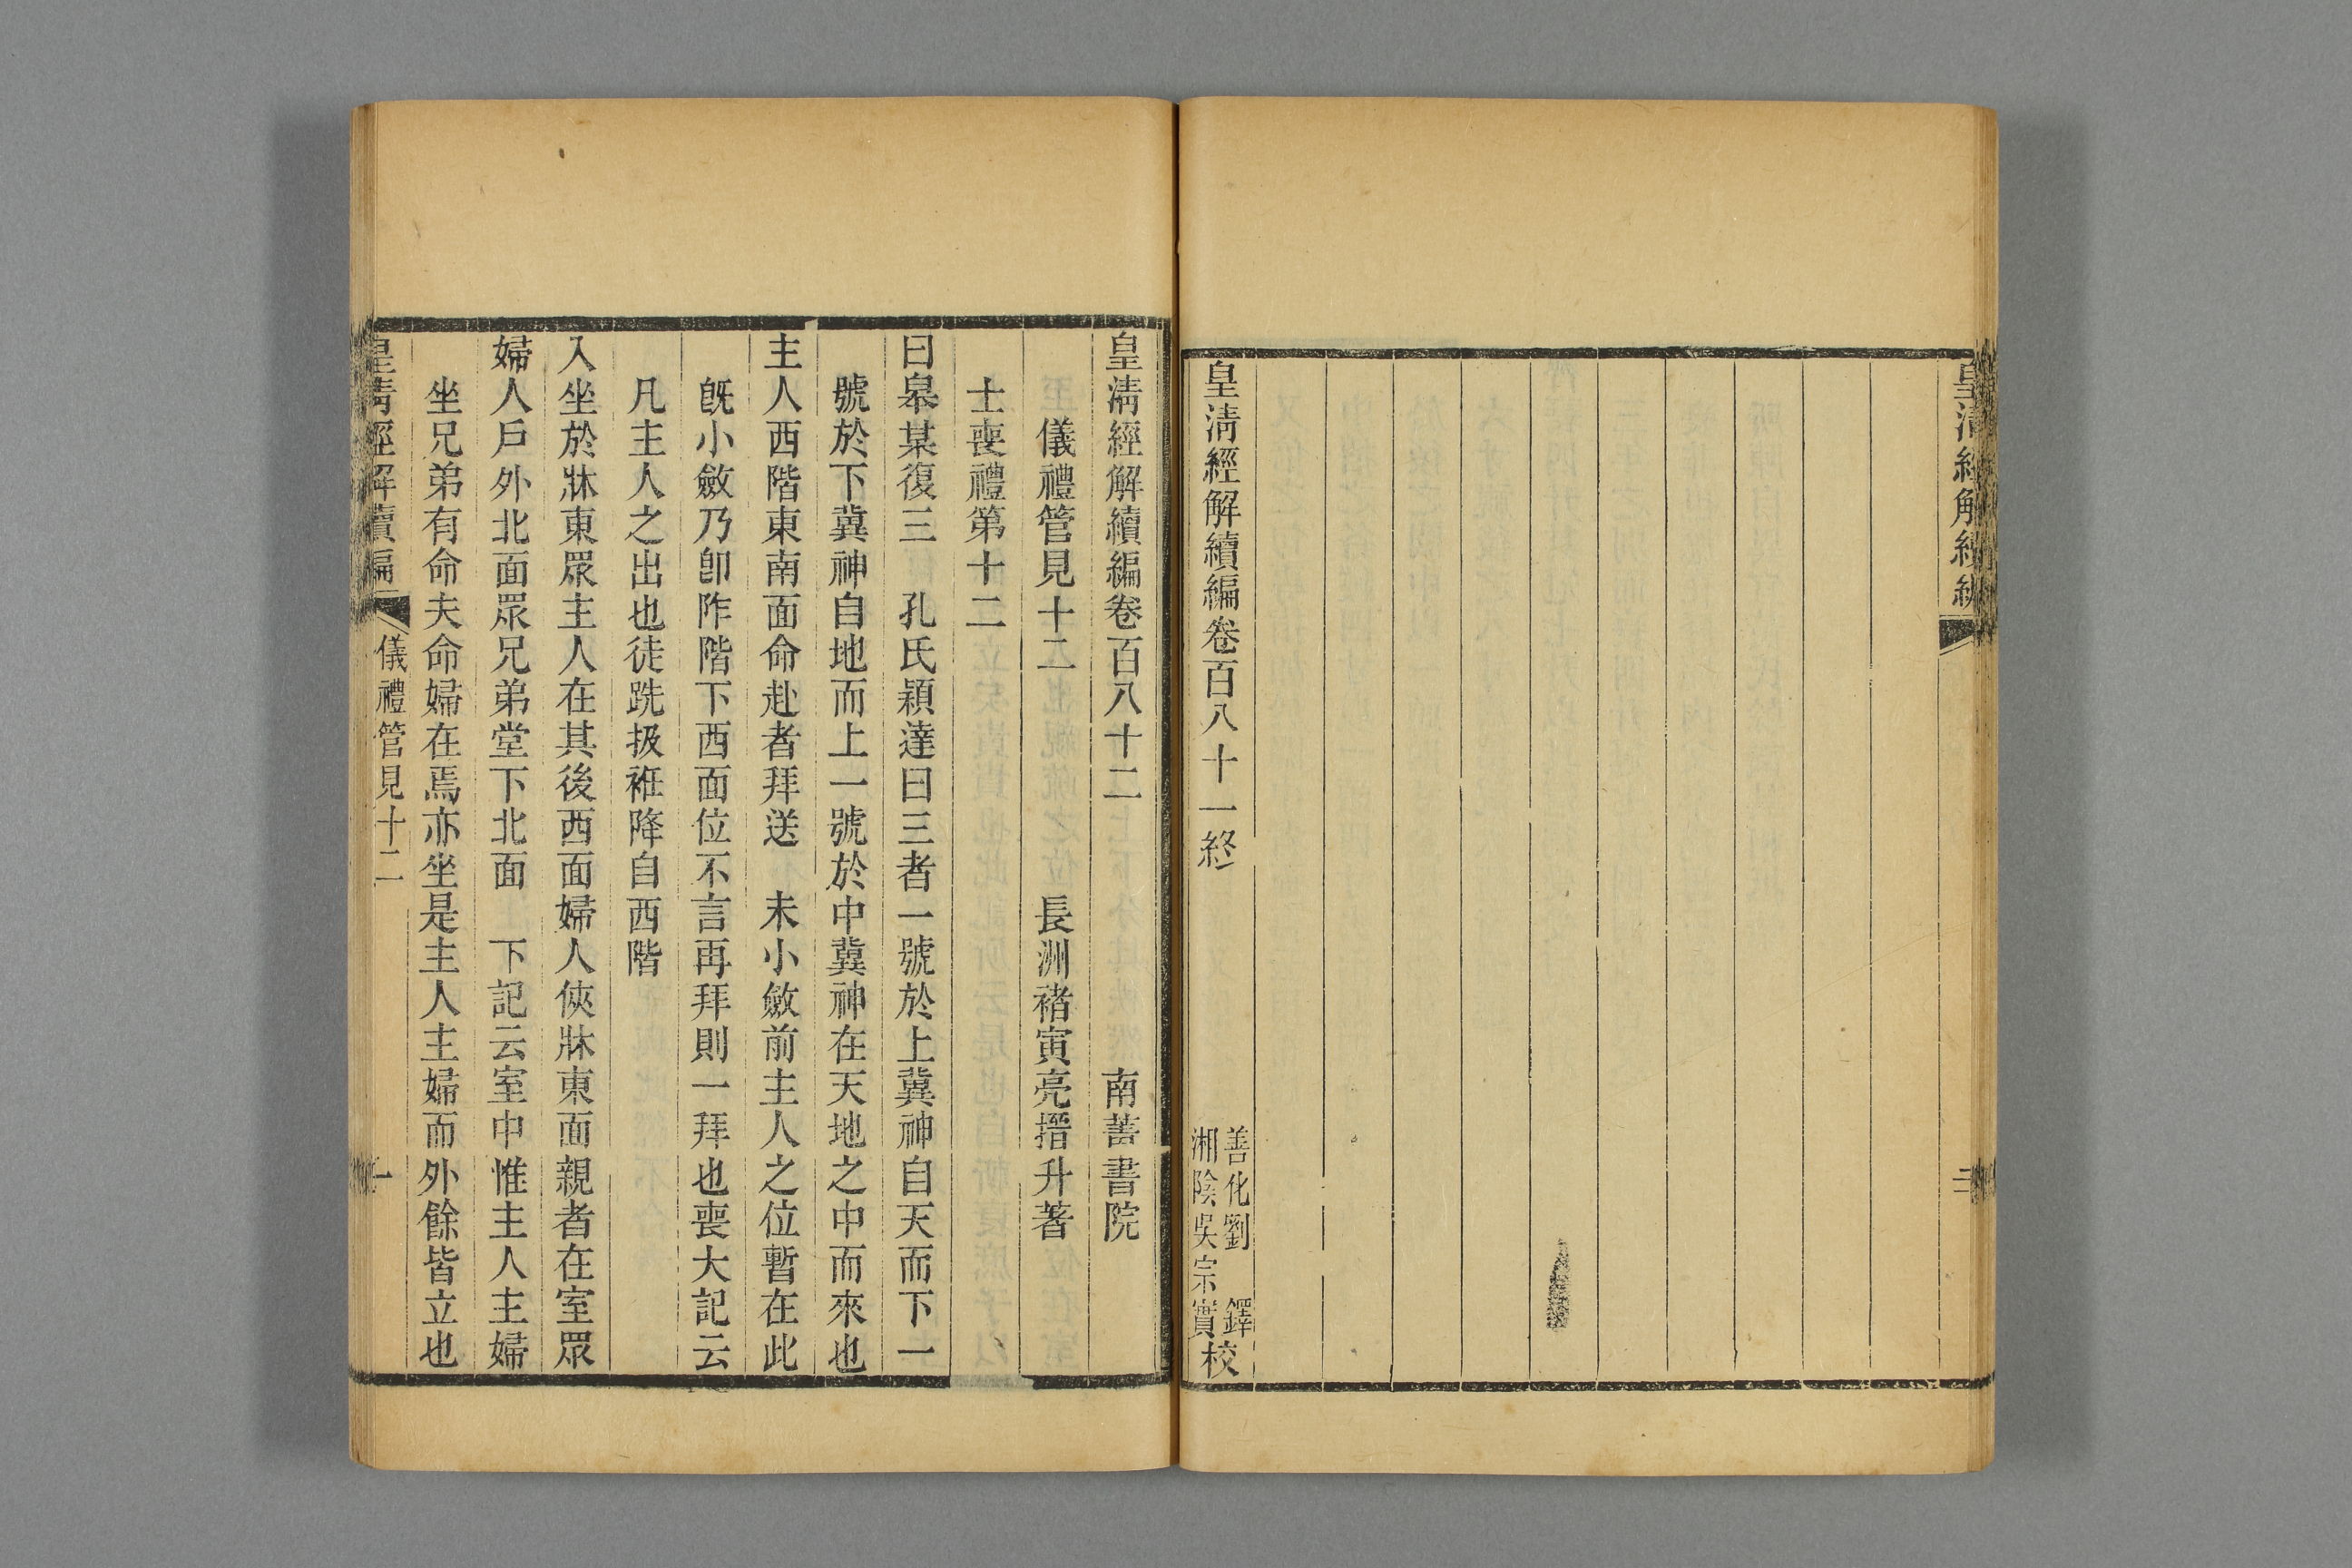 皇清經解續編
三
皇清經解續編卷百八十一終
善化劉鐸
湘陰吳宗實校
皇清經解續編卷百八十二 南菁書院
儀禮管見十二 長洲褚寅亮搢升著
士喪禮第十二
曰皋某復三 孔氏穎達曰三者一號於上冀神自天而下一
號於下冀神自地而上一號於中冀神在天地之中而來也
主人西階東南面命赴者拜送 未小斂前主人之位暫在此
旣小斂乃卽阼階下西面位不言再拜則一拜也喪大記云
凡主人之出也徒跣扱衽降自西階
入坐於牀東眾主人在其後西面婦人俠牀東面親者在室眾
婦人戶外北面眾兄弟堂下北面 下記云室中惟主人主婦
坐兄弟有命夫命婦在焉亦坐是主人主婦而外餘皆立也
皇清經解續編 儀禮管見十二 一